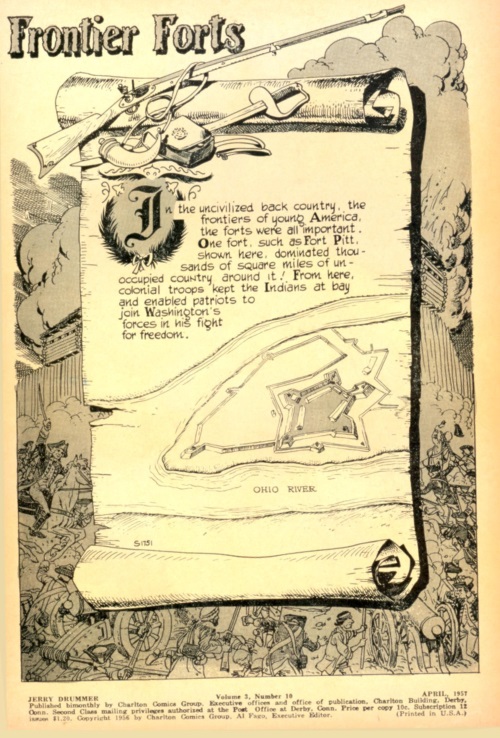 Frontier Forts
In the uncivilized back country, the
frontiers of young America,
the forts were all important.
One fort, such as Fort Pitt,
shown here, dominated thou-
sands of square miles of un-
occupied country around it! From here,
colonial troops kept the Indians at bay
and enabled patriots to
join Washington's
forces in his fight
for freedom.
OHIO RIVER
S1751
JERRY DRUMMER Volume 3, Number 10 APRIL, 1957
Published bimonthly by Charlton Comics Group. Executive offices and office of publication, Charlton Building, Derby,
Conn. Second Class mailing privileges authorized at the Post Office at Derby, Conn. Price per copy 10c. Subscription 12
issues $1.20. Copyright 1956 by Charlton Comics Group. Al Fago, Executive Editor. (Printed in U.S.A.)